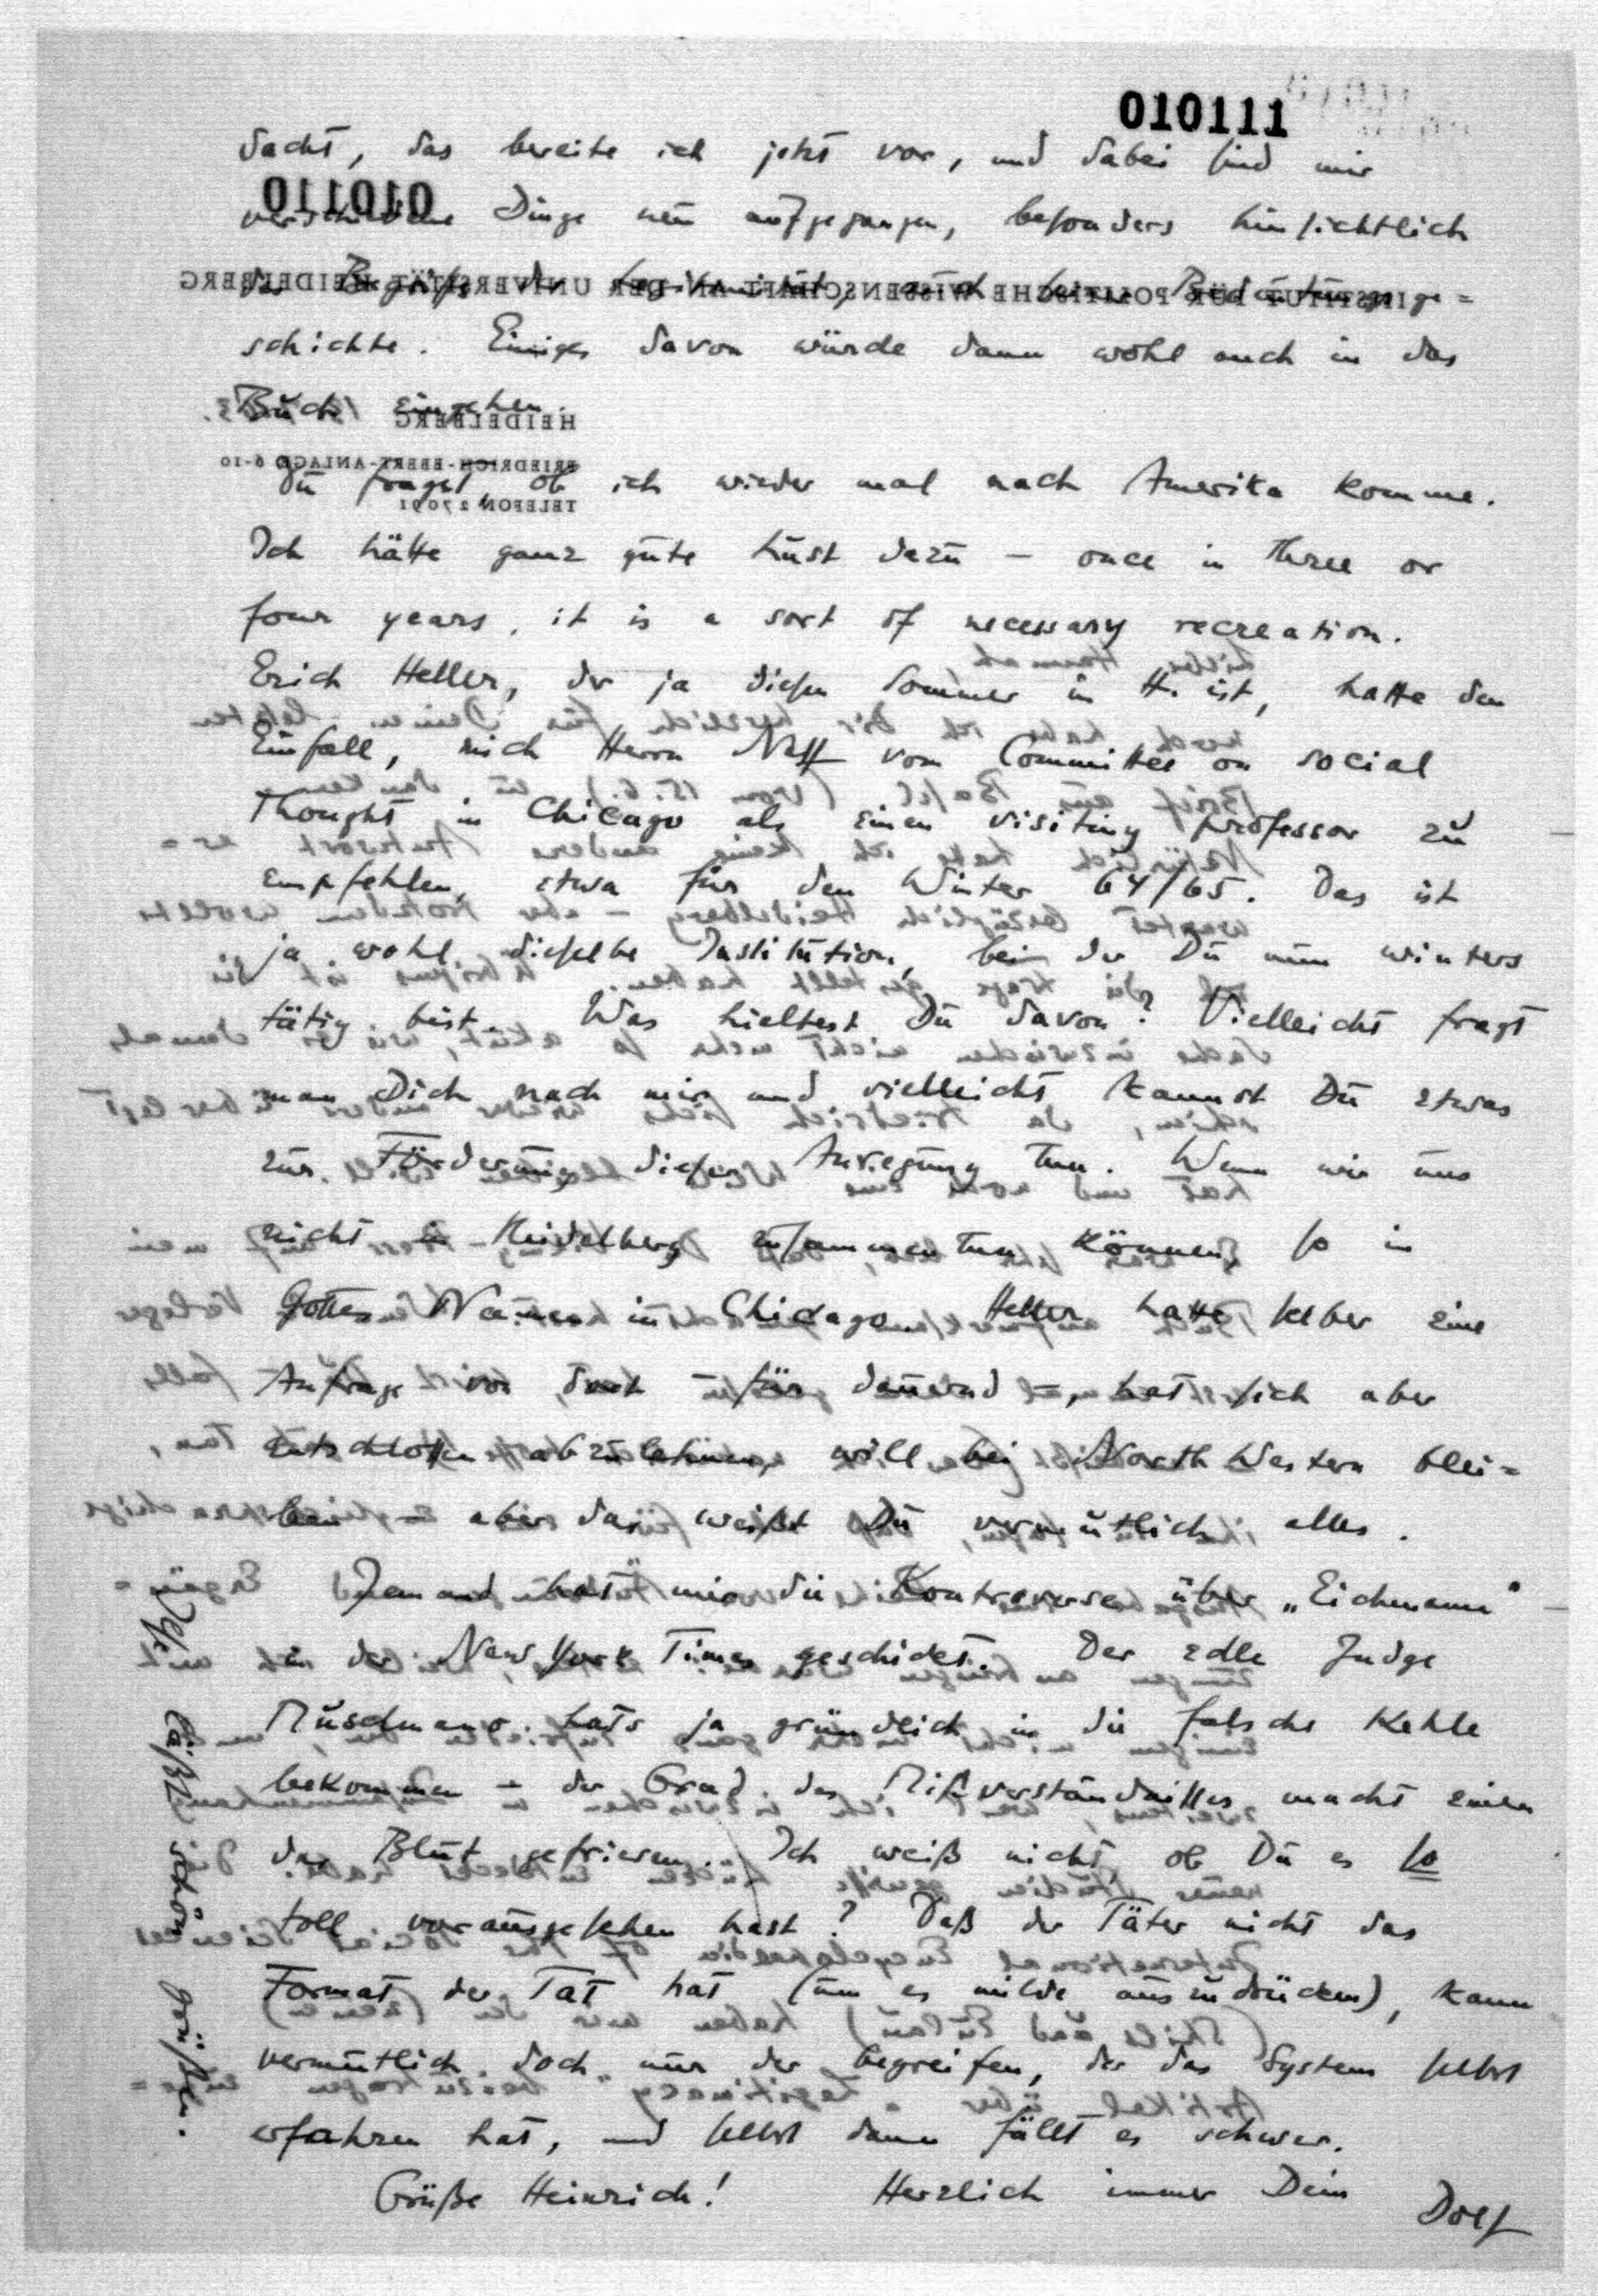 010111
dacht, das bereite ich jetzt vor, und dabei sind mir
verschiedene Dinge neu aufgegangen, besonders hinsichtlich
des Begriffs der Legitimität, auch seiner Bedeutungsge=
schichte. Einiges davon würde dann wohl auch in das
Buch eingehen.
Du fragst ob ich wieder mal nach Amerika komme.
Ich hätte ganz gute Lust dazu – once in three or
four years, it is a sort of necessary recreation.
Erich Heller, der ja diesen Sommer in H. ist, hatte den
Einfall, mich Herrn Neff vom Committee on social
Thought in Chicago als einen visiting professor zu
empfehlen, etwa für den Winter 64/65. Das ist
ja wohl dieselbe Institution, bei der Du nun winters
tätig bist. Was hieltest Du davon? Vielleicht fragt
man Dich nach mir und vielleicht kannst Du etwas
zur Förderung dieser Anregung tun. Wenn wir uns
nicht in Heidelberg zusammentun können, so in
Gottes Namen in Chicago. Heller hatte selber eine
Anfrage von dort – für dauernd –, hat sich aber
entschlossen abzulehnen, will bei North Western blei=
ben – aber das weißt Du vermutlich alles.
Jemand hat mir die Kontroverse über „Eichmann"
in der New York Times geschickt. Der edle Judge
Musmanno hats ja gründlich in die falsche Kehle
bekommen – der Grad des Mißverständnisses macht einem
das Blut gefrieren. Ich weiß nicht, ob Du es so
toll vorausgesehen hast? Daß der Täter nicht das
Format der Tat hat (um es milde auszudrücken), kann
vermutlich doch nur der begreifen, der das System selbst
erfahren hat, und selbst dann fällt es schwer.
Grüße Heinrich! Herzlich immer Dein
Dolf
läßt schön grüßen.